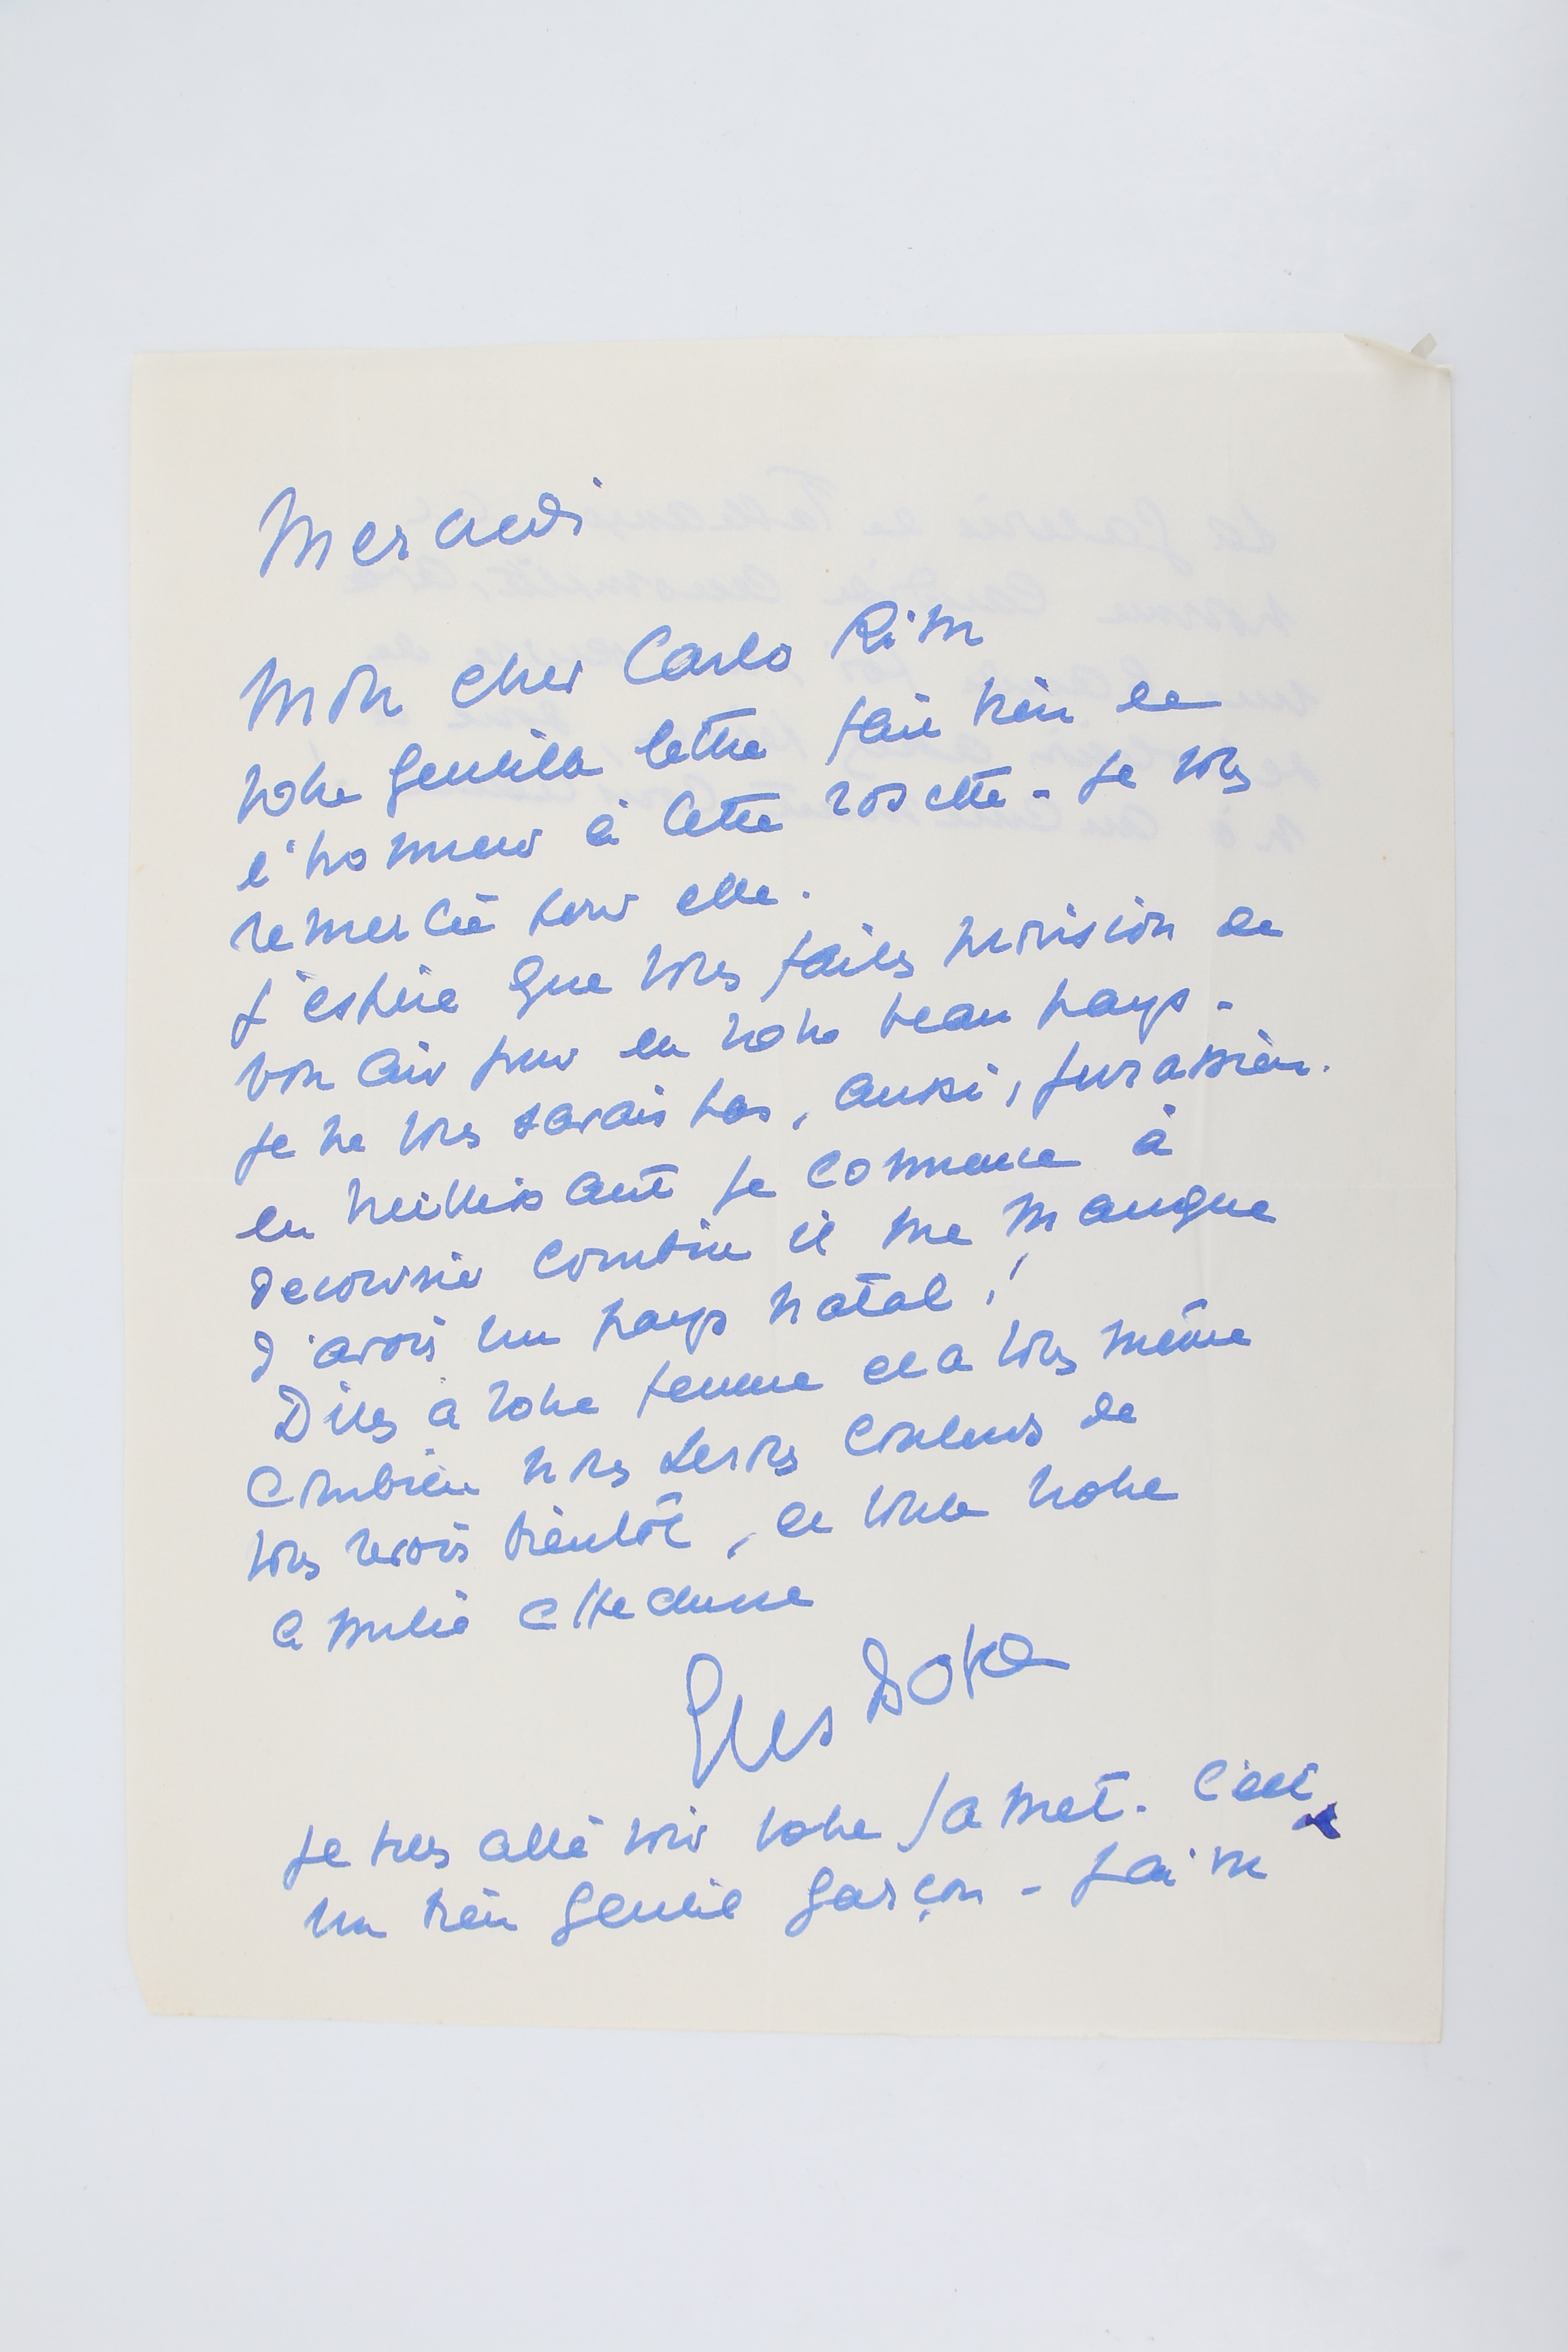 Mercredi
Mon cher Carlo Rim
votre gentille lettre fait bien de
l'honneur à cette rosette - Je vous
remercie pour elle.
J'espère que vous faites provision de
bon air pur en votre beau pays -
Je ne vous savais pas, aussi, jurassien.
en vieillissant je commence à
découvrir combien il me manque
d'avoir un pays natal !
Dites à votre femme et à vous même
combien nous serons contents de
vous revoir bientôt, et toute notre
amitié attachée
Gus Bofa
Je suis allé voir votre Jamet. C'est
un bien gentil garçon - J'ai vu